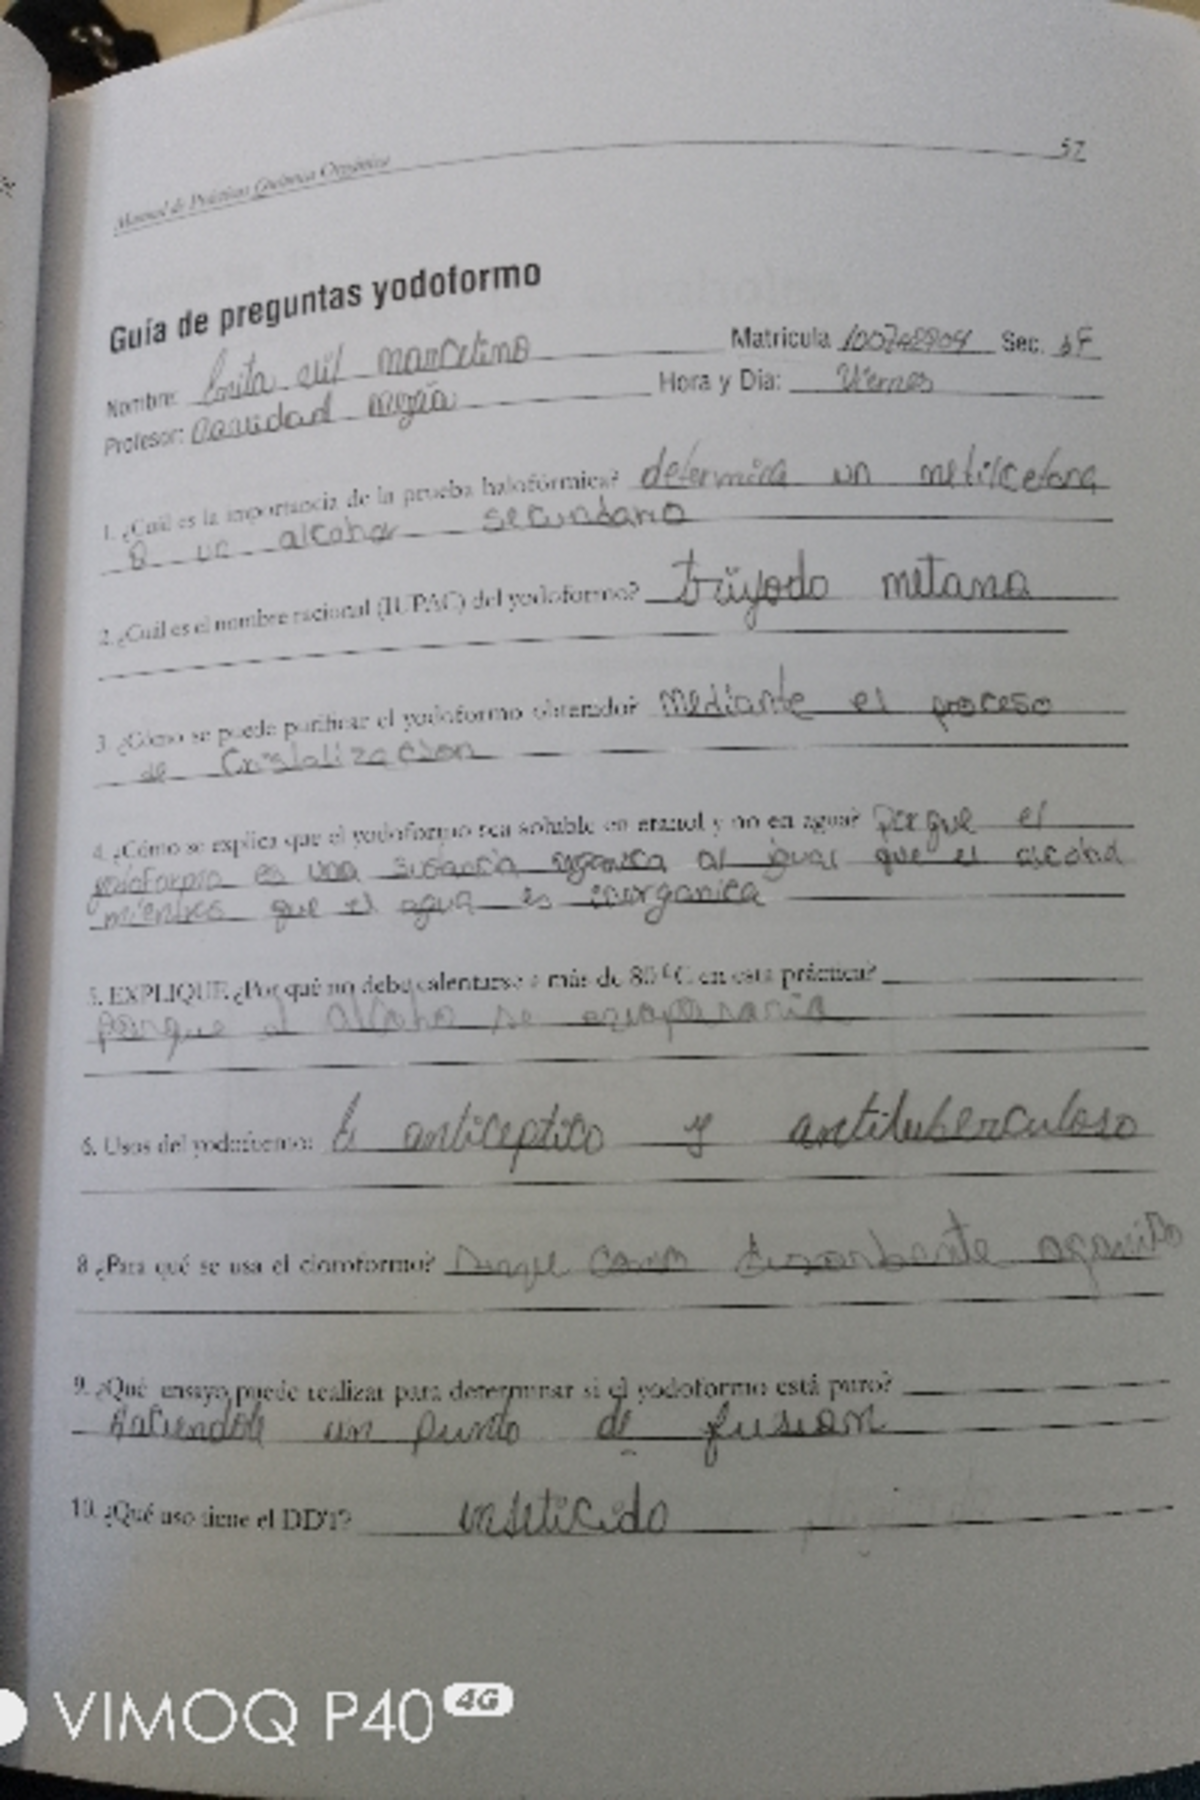 Manual de Prácticas Química Orgánica 57
Guía de preguntas yodoformo
Matricula Sec.
Nombre: marcelino
Hora y Dia: Viernes
Profesor:
1. ¿Cuál es la importancia de la prueba halofórmica? determina un metilcetona
o un alcohol secundario
2. ¿Cuál es el nombre racional (IUPAC) del yodoformo? triyodo metano
3. ¿Cómo se puede purificar el yodoformo obtenido? mediante el proceso
de Cristalizacion
4. ¿Cómo se explica que el yodoformo sea soluble en etanol y no en agua? porque el
yodoformo es una sustancia organica al igual que el alcohol
mientras que el agua es inorganica
5. EXPLIQUE ¿Por qué no debe calentarse a más de 80 °C en esta práctica?
porque el alcoho se evaporaria
6. Usos del yodoformo: anticeptico y antituberculoso
8 ¿Para qué se usa el cloroformo? como
9. ¿Qué ensayo puede realizar para determinar si el yodoformo está puro?
Haciendole un punto de fusion
10. ¿Qué uso tiene el DDT? inseticida
VIMOQ P40 4G